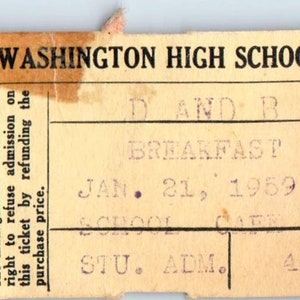 WASHINGTON HIGH SCHOO
D AND B
BREAKFAST
JAN. 21, 1959
SCHOOL CAFE
STU. ADM. 4
right to refuse admission on
this ticket by refunding the
purchase price.